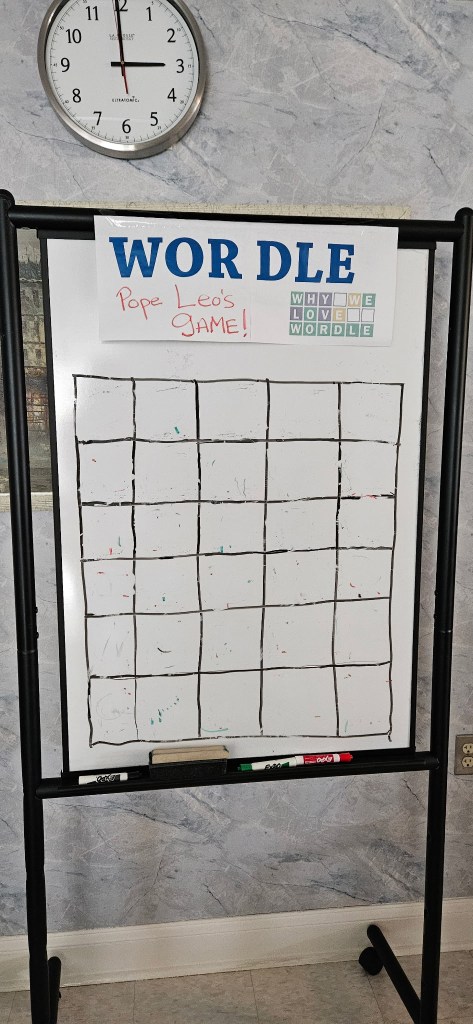 11 12 1
10 2
9 3
8 4
7 6 5
ULTRATONIC
WOR DLE
Pope Leo's
GAME!
WHY WE
LOVE
WORDLE
EXPO
EXPO EXPO